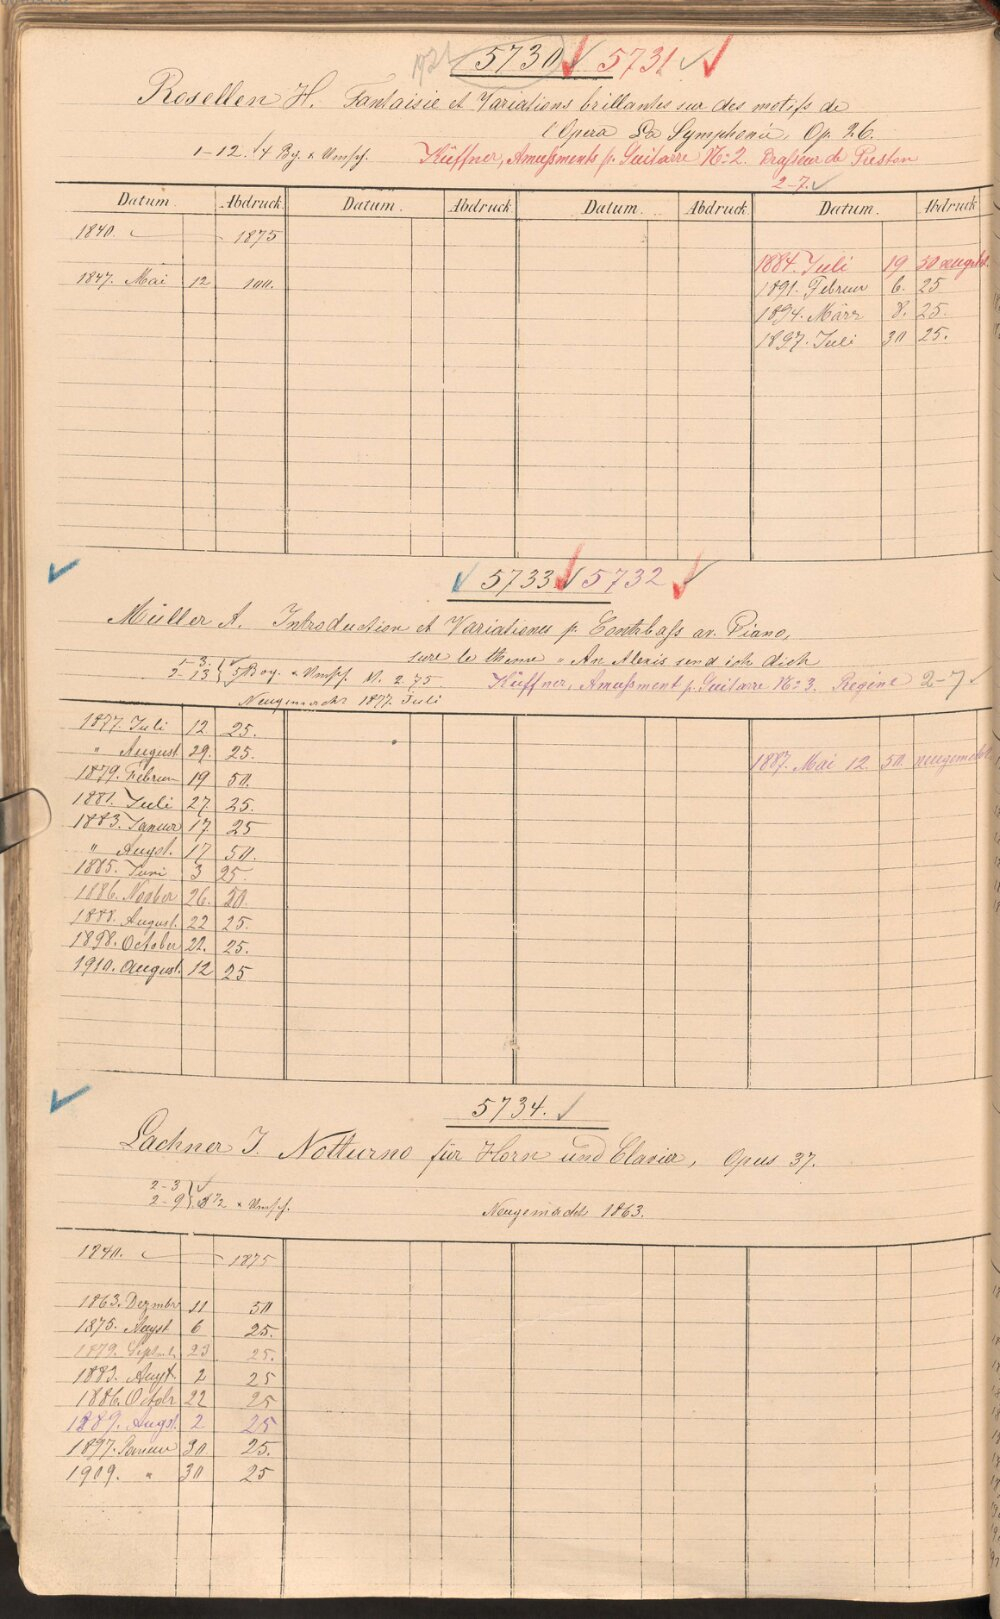 1921 5730 5731
Rosellen H. Fantaisie et Variations brillantes sur des motifs de
l'Opera La Symphonie, Op. 26.
1-12. 14 Bg. + Umsch. Küffner, Amusements p. Guitarre No. 2. Brasseur de Preston
2-7.
Datum. Abdruck Datum. Abdruck Datum. Abdruck Datum. Abdruck
1840. 1875
1884. Juli 19 50
1847. Mai 12 100.
1891. Februar 6. 25
1894. März 8. 25.
1897. Juli 30 25.
5733 5732
Müller A. Introduction et Variationes p. Contrbass av. Piano,
sure le theme "An Alexis send ich dich
1-3.
2-13 5 Bog. + Umsch. M. 2,75 Küffner, Amusement p. Guitarre No. 3. Regine 2-7
Neugemacht 1877. Juli
1877. Juli 12 25.
" August 29. 25. 1887. Mai 12 50. neugemacht
1879. Februar 19 50.
1881. Juli 27. 25.
1883. Januar 17. 25
" Augst. 17 50.
1885. Juni 3 25.
1886. Novber 26. 50.
1888. August. 22 25.
1898. October 22. 25.
1910. August. 12 25
5734.
Lachner I. Notturno für Horn und Clavier, Opus 37.
2-3
2-9 + Umsch. Neugemacht 1863.
1840. 1875
1863. Dezmbr 11 50
1875. Augst 6 25.
1879. Sept. 23 25.
1883. Augst. 2 25
1886. Octobr 22 25
1889. Augst. 2 25
1897. Januar 30 25.
1909. " 30 25